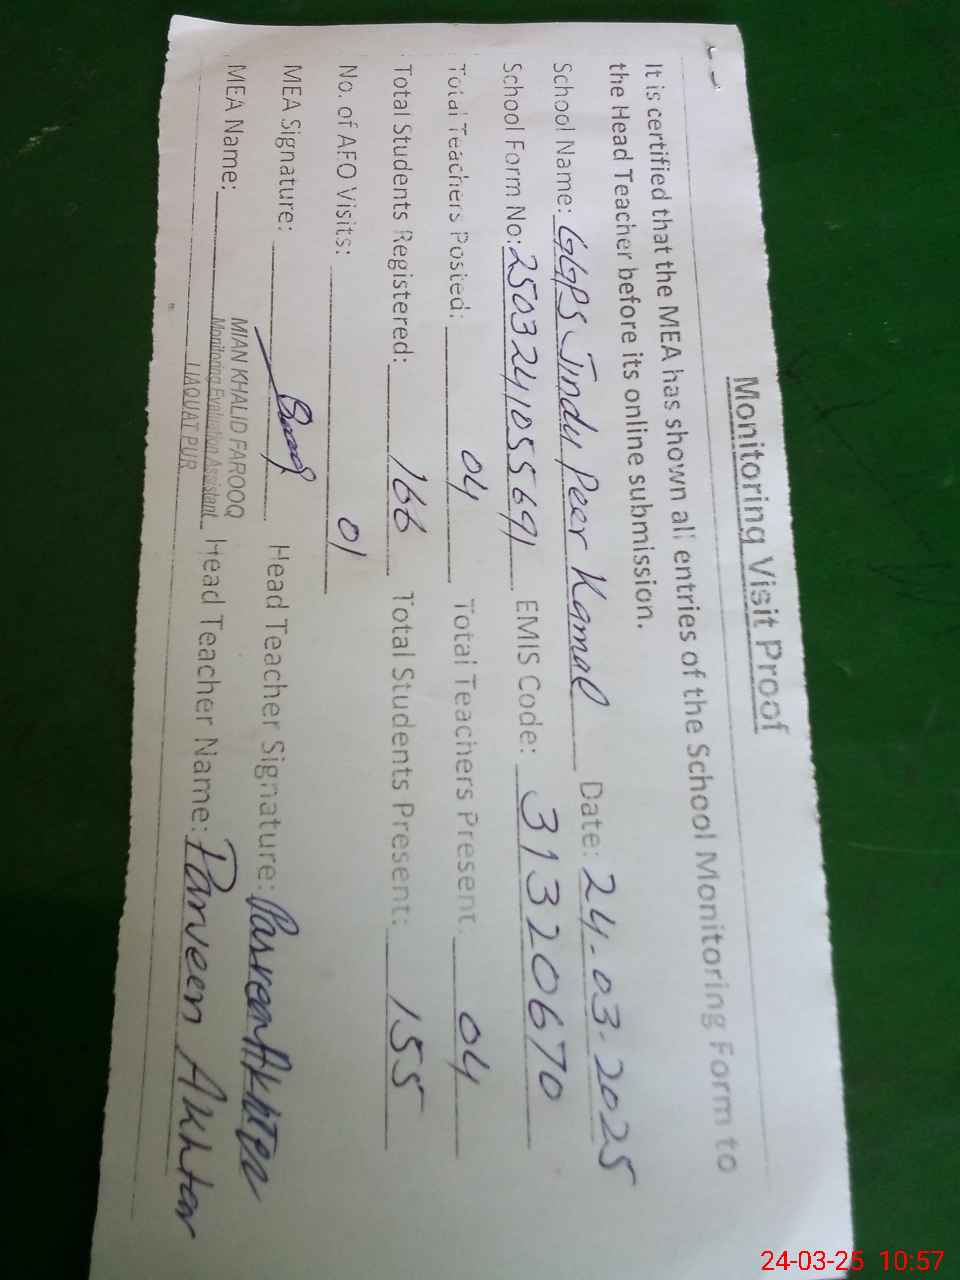 Monitoring Visit Proof
It is certified that the MEA has shown all entries of the School Monitoring Form to
the Head Teacher before its online submission.
School Name: GGPS Jindu Peer Kamal Date: 24-03-2025
School Form No: 2503241055691 EMIS Code: 31320670
Total Teachers Posted: 04 Total Teachers Present 04
Total Students Registered: 166 Total Students Present: 155
No. of AEO Visits: 01
MEA Signature: Head Teacher Signature: Parveen Akhter
MIAN KHALID FAROOQ
MEA Name: Monitoring Evaluation Assistant Head Teacher Name: Parveen Akhtar
LIAQUAT PUR
24-03-25 10:57